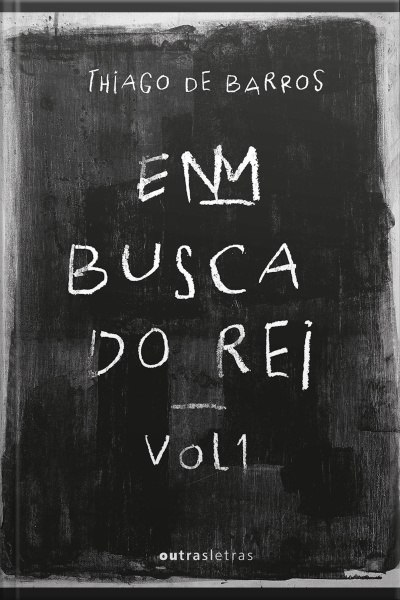 THIAGO DE BARROS
EM
BUSCA
DO REI
—
VOL1
outrasletras